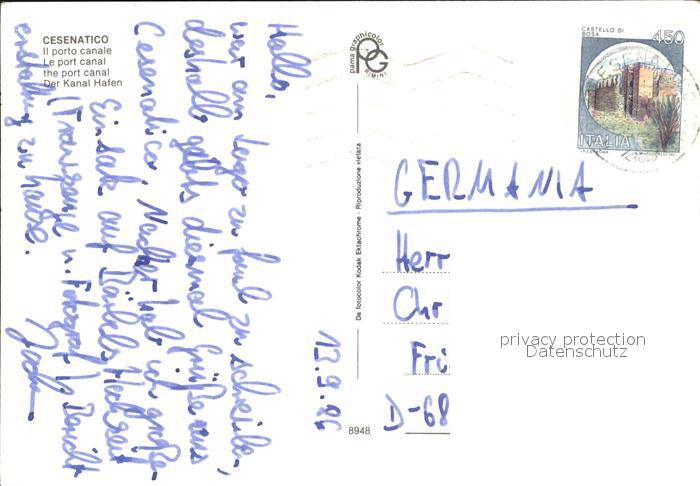 CESENATICO
Il porto canale
Le port canal
the port canal
Der Kanal Hafen
pama graphicolor
RIMINI
CASTELLO DI
BOSA
450
ITALIA
Hallo,
war am zu faul zu schreiben,
deshalb gibts diesmal Grüße aus
Cesenatico. Nachher hab ich große-
Einsatz auf Bärbels Hochzeit
u. Fotograf
erstattung zu hause.
13.9.86
De fotocolor Kodak Ektachrome - Riproduzione vietata
8948
GERMANIA
Herr
Chr
Fri
D-68
privacy protection
Datenschutz